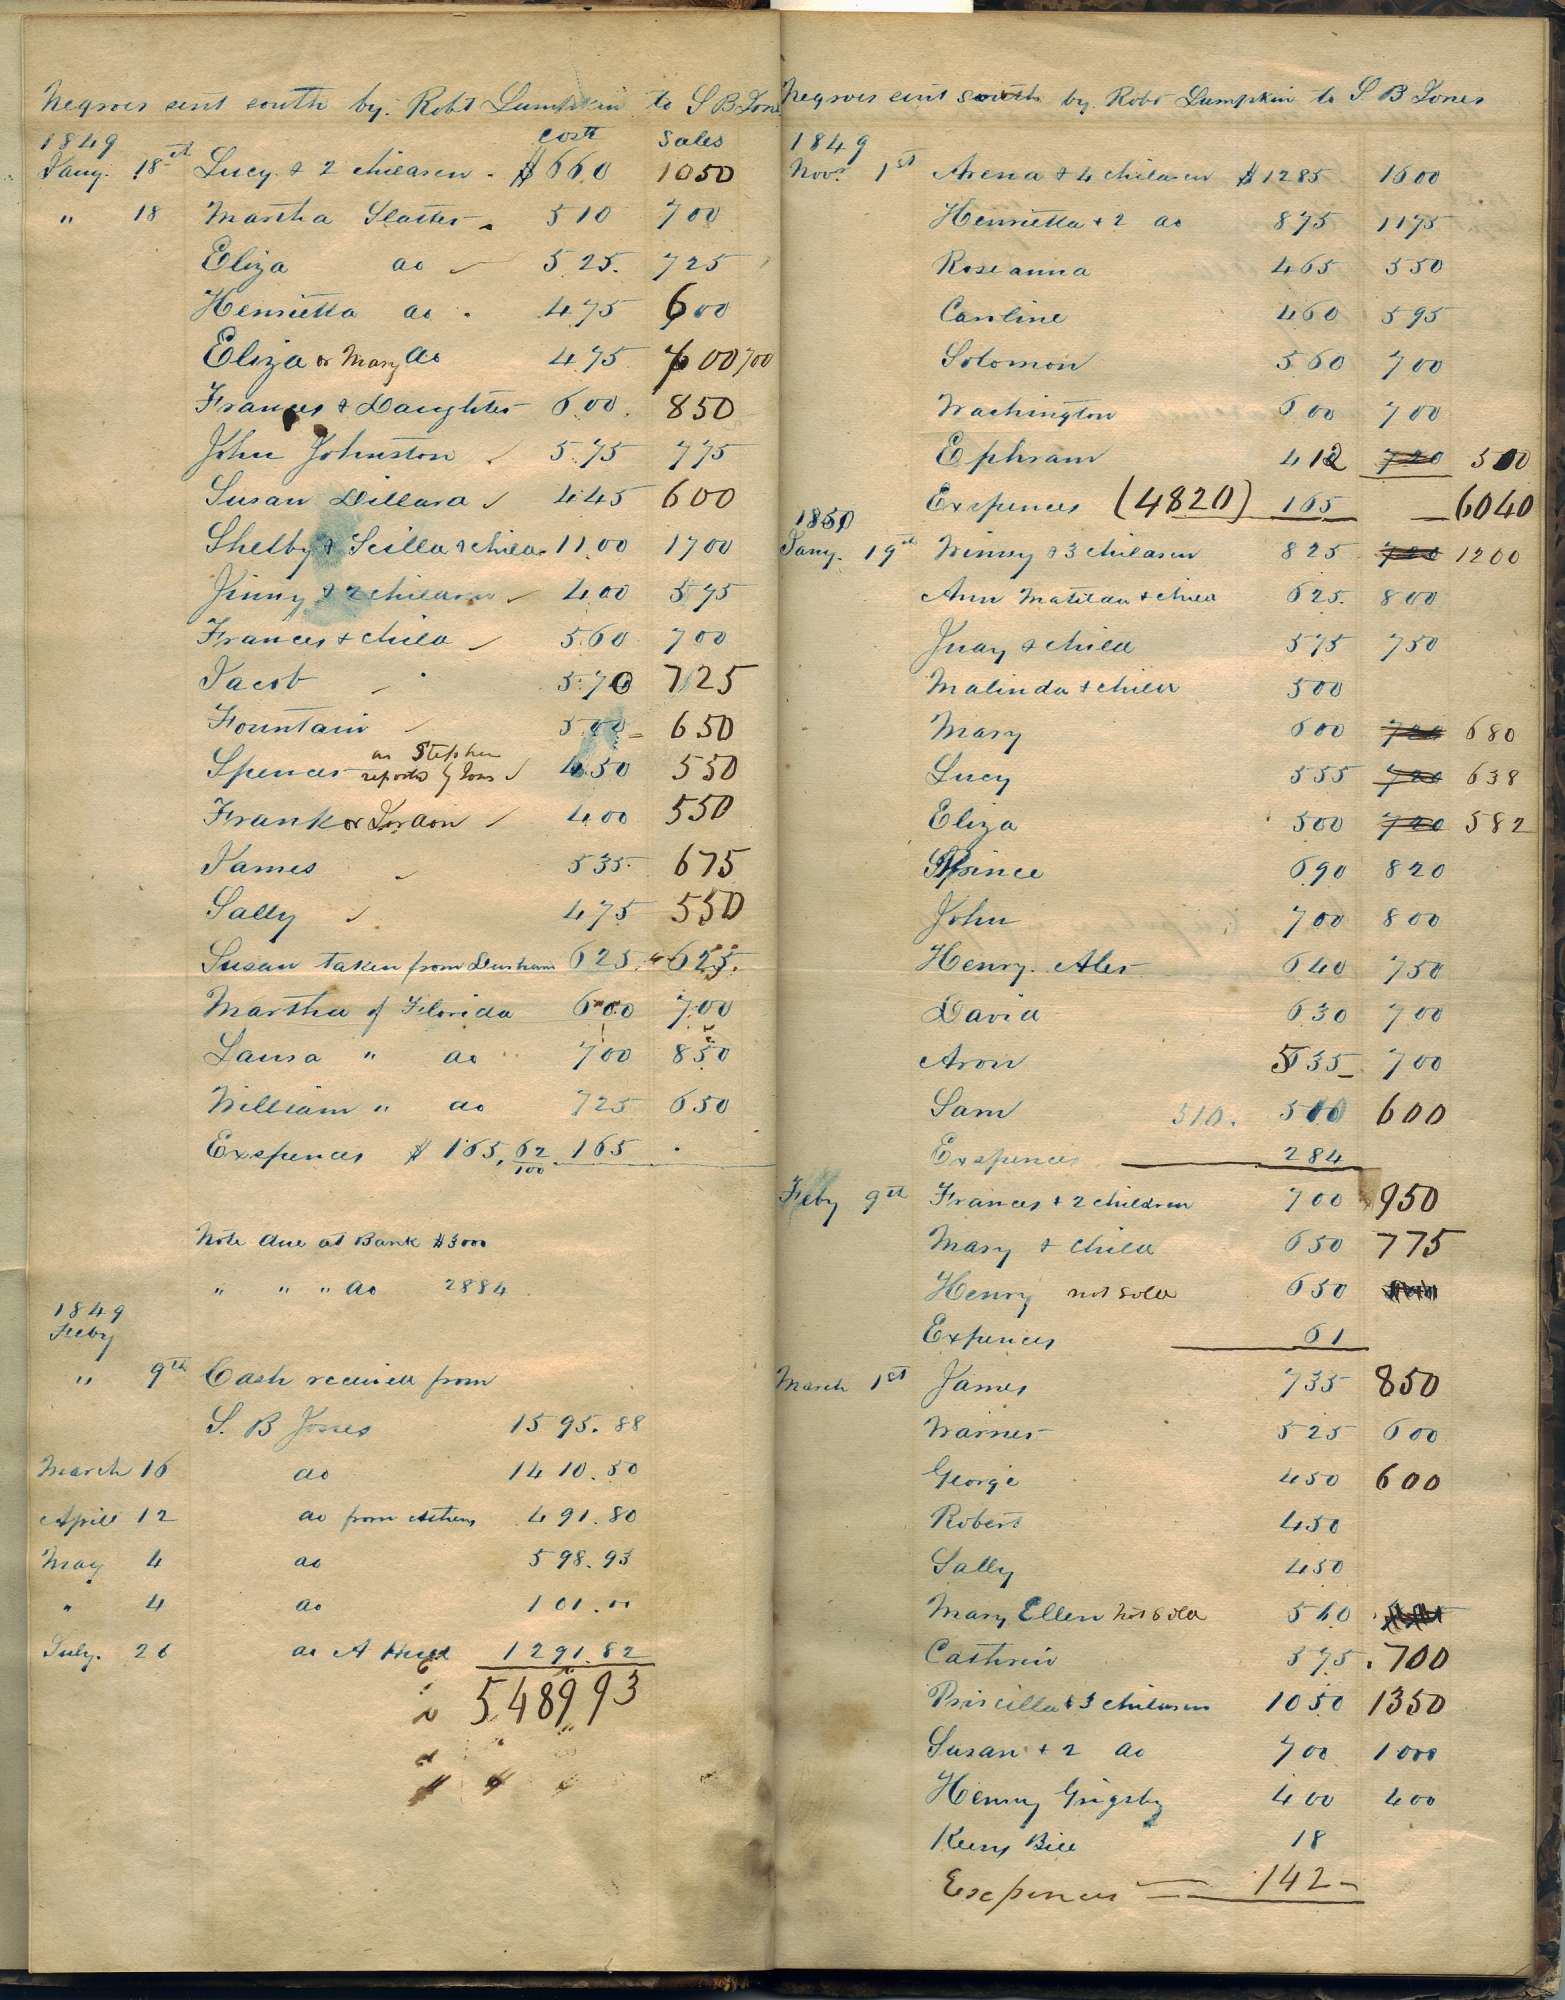 Negroes sent south by Robt Lumpkin to S B Jones
1849 Costs Sales
Jany. 18th Lucy & 2 children $660 1050
" 18 Martha Slatter 510 700
Eliza do 525 725
Henrietta do 475 600
Eliza or Mary do 475 700 700
Frances & Daughter 600 850
John Johnston 575 775
Susan Dillard 445 600
Shelby & Scilla & child 1100 1700
Jinny & 2 children 400 575
Frances & child 560 700
Jacob 570 725
Fountain 500 650
Spencer as Stephen reported by Jones 450 550
Frank or Jordon 400 550
James 535 675
Sally 475 550
Susan taken from Durham 625 625
Martha of Florida 600 700
Laura " do 700 850
William " do 725 650
Exspences $165,62/100 165
Note due at Bank $3000
" " " do 2884
1849
Feby
" 9th Cash received from
S. B Jones 1595.88
March 16 do 1410.50
April 12 do from Athens 491.80
May 4 do 598.93
" 4 do 101.00
July. 26 do A 1291.82
5,489 93
Negroes sent south by Robt Lumpkin to S B Jones
1849
Novr 1st Arena & 4 children $1285 1600
Henrietta & 2 do 875 1175
Rose anna 465 550
Caroline 460 595
Solomon 560 700
Washington 600 700
Ephram 412 720 500
Exspences (4820) 165 6040
1850
Jany. 19th Winney & 3 children 825 720 1200
Ann Matilda & child 625 800
Judy & child 575 750
Malinda & child 500
Mary 600 720 680
Lucy 555 720 638
Eliza 500 720 582
Prince 690 820
John 700 800
Henry. Alex 640 750
David 630 700
Aron 535 700
Sam 510. 500 600
Exspences 284
Feby 9th Frances & 2 children 700 950
Mary & child 650 775
Henry not sold 650
Expences 61
March 1st James 735 850
Warner 525 600
George 450 600
Robert 450
Sally 450
Mary Ellen not sold 560
Cathrin 575 700
Priscilla & 3 children 1050 1350
Susan & 2 do 700 1000
Henry Grigsby 400 400
Bill 18
Exspences 142